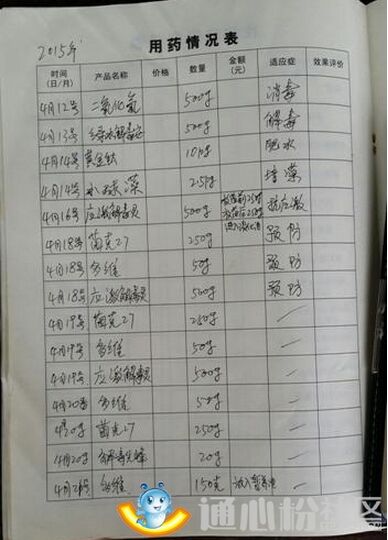 2015年
用药情况表
时间(日/月) 产品名称 价格 数量 金额(元) 适应症 效果评价
4月12号 二氧化氯 500g 消毒
4月13号 解毒 500g 解毒
4月14号 黄金钛 10g 肥水
4月14号 小球藻 2.5g 培藻
4月16号 应激解毒灵 500g 抗应激
4月18号 菌克27 250g 预防
4月18号 多维 50g 预防
4月18号 应激解毒灵 500g 预防
4月19号 菌克27 250g 一
4月19号 多维 50g 一
4月19号 应激解毒灵 500g 一
4月20号 多维 50g 一
4月20号 菌克27 250g 一
4月20号 20g 一
多维 150克
通心粉社区